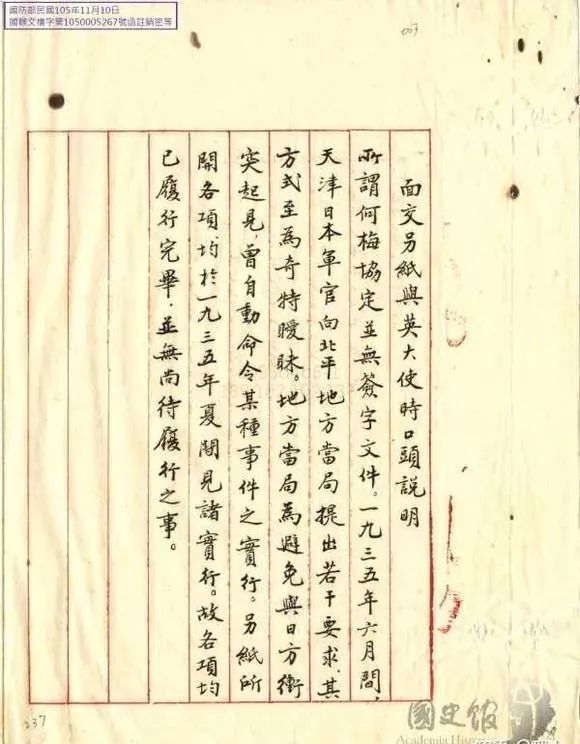 國防部民國105年11月10日
國聯文檔字第1050005267號函註銷密等
003
面交另紙與英大使時口頭說明
所謂何梅協定並無簽字文件。一九三五年六月間，
天津日本軍官向北平地方當局提出若干要求，其
方式至為奇特曖昧。地方當局為避免與日方衝
突起見，曾自動命令某種事件之實行。另紙所
開各項，均於一九三五年夏間見諸實行。故各項均
已履行完畢，並無尚待履行之事。
237
國史館
Academia His